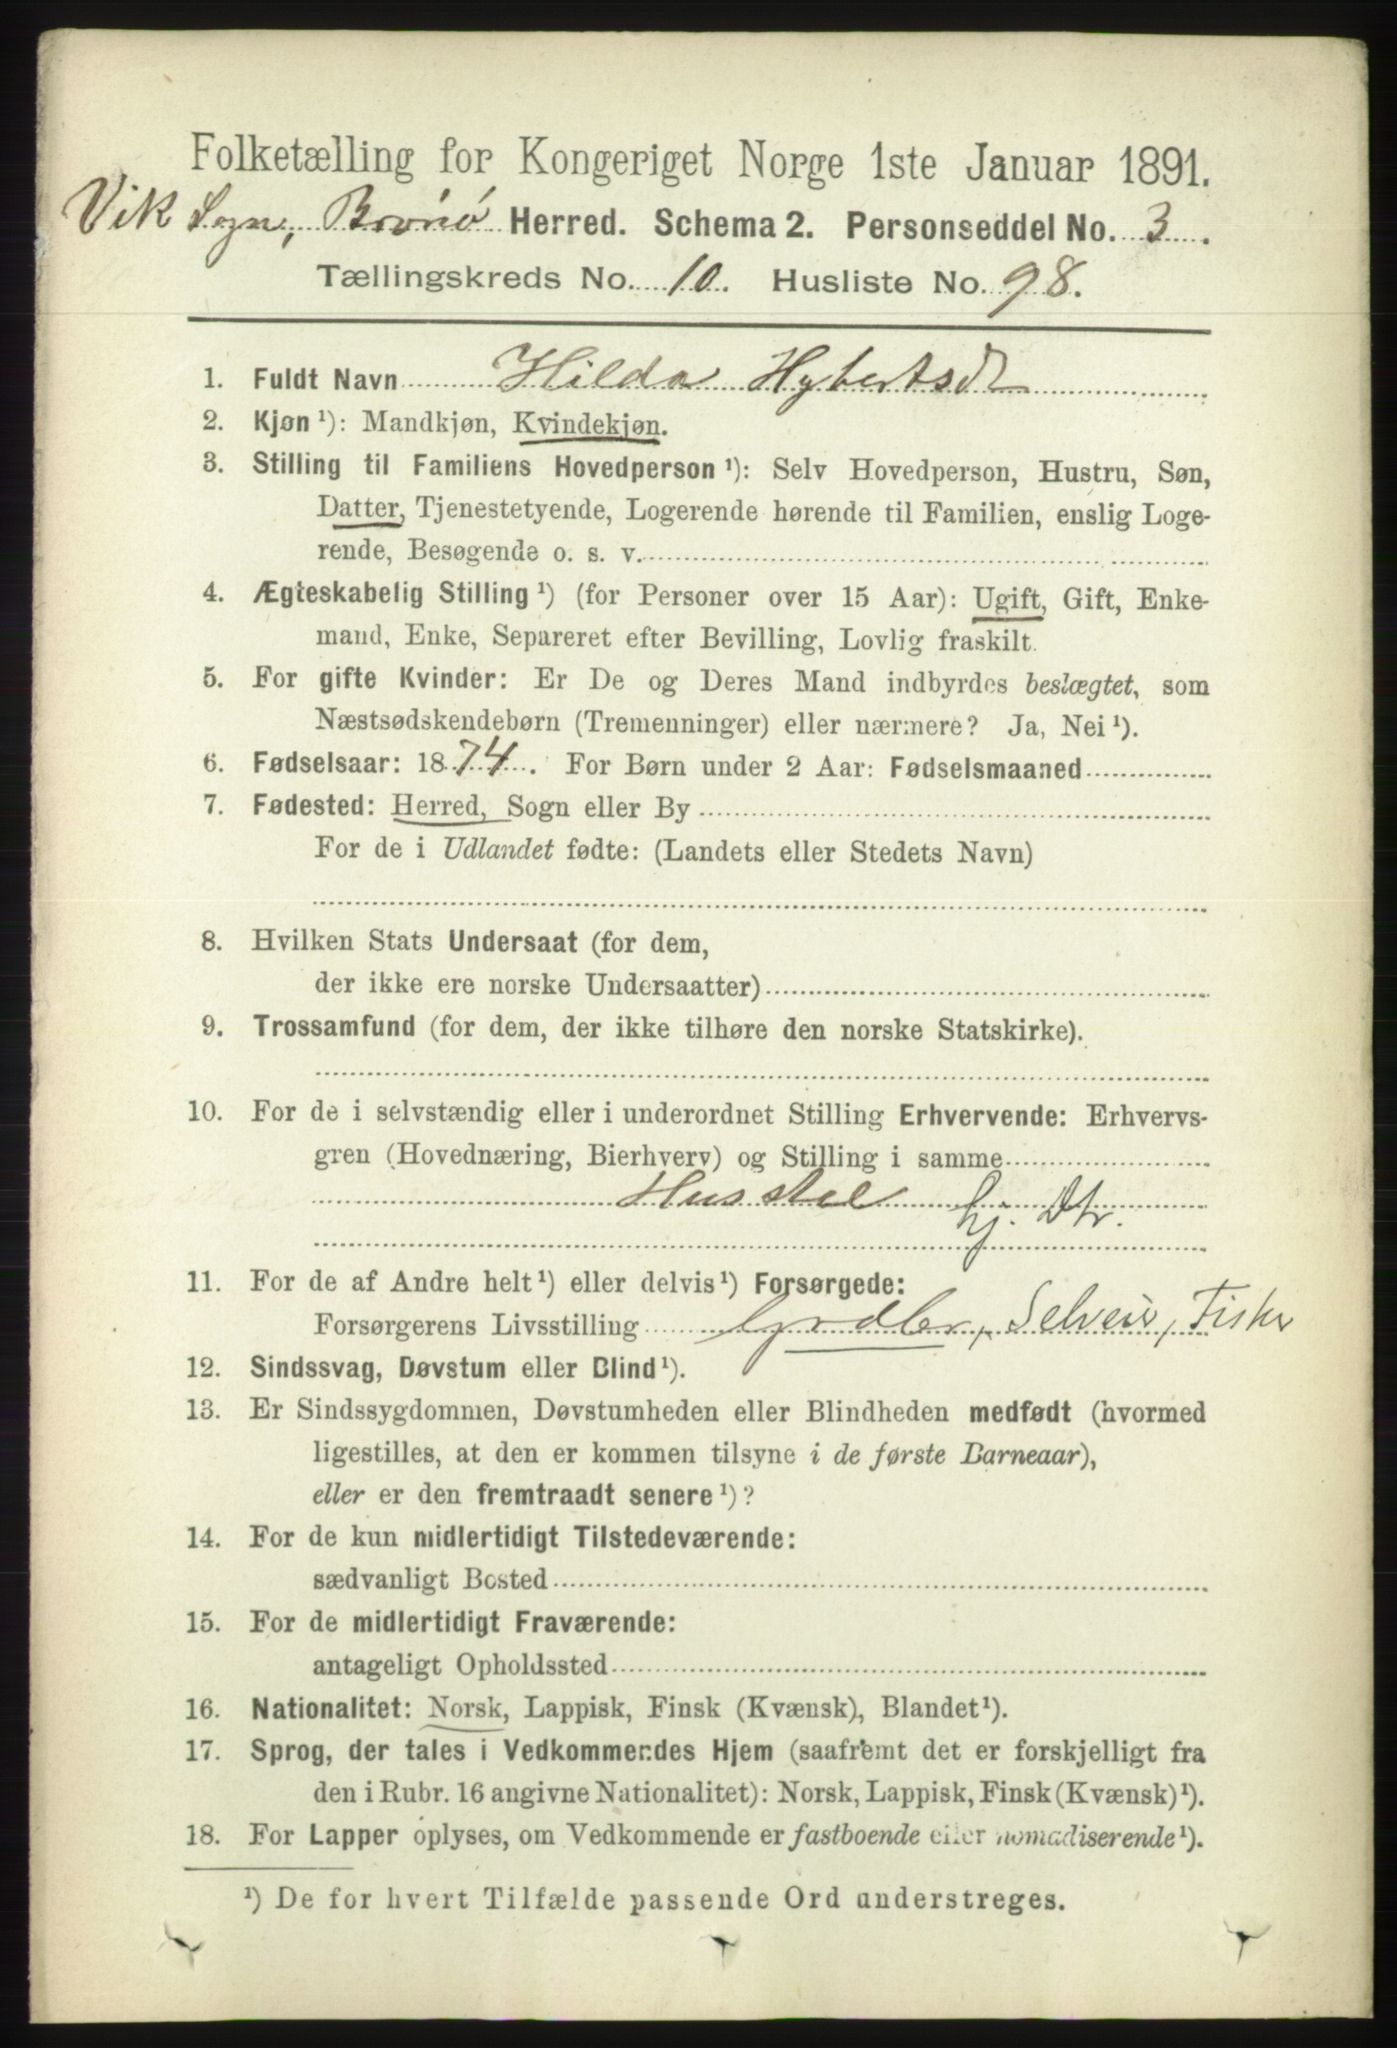 Folketælling for Kongeriget Norge 1ste Januar 1891.
Vik Sogn, Brønø Herred. Schema 2. Personseddel No. 3.
Tællingskreds No. 10. Husliste No. 98.
1. Fuldt Navn Hilda Hybertsdt
2. Kjøn ¹): Mandkjøn, Kvindekjøn.
3. Stilling til Familiens Hovedperson ¹): Selv Hovedperson, Hustru, Søn,
Datter, Tjenestetyende, Logerende hørende til Familien, enslig Loge-
rende, Besøgende o. s. v.
4. Ægteskabelig Stilling ¹) (for Personer over 15 Aar): Ugift, Gift, Enke-
mand, Enke, Separeret efter Bevilling, Lovlig fraskilt.
5. For gifte Kvinder: Er De og Deres Mand indbyrdes beslægtet, som
Næstsødskendebørn (Tremenninger) eller nærmere? Ja, Nei ¹).
6. Fødselsaar: 1874. For Børn under 2 Aar: Fødselsmaaned
7. Fødested: Herred, Sogn eller By
For de i Udlandet fødte: (Landets eller Stedets Navn)
8. Hvilken Stats Undersaat (for dem,
der ikke ere norske Undersaatter)
9. Trossamfund (for dem, der ikke tilhøre den norske Statskirke).
10. For de i selvstændig eller i underordnet Stilling Erhvervende: Erhvervs-
gren (Hovednæring, Bierhverv) og Stilling i samme
Husstel hj. Dtr.
11. For de af Andre helt ¹) eller delvis ¹) Forsørgede:
Forsørgerens Livsstilling Grdbr, Selveier, Fisker
12. Sindssvag, Døvstum eller Blind ¹).
13. Er Sindssygdommen, Døvstumheden eller Blindheden medfødt (hvormed
ligestilles, at den er kommen tilsyne i de første Barneaar),
eller er den fremtraadt senere ¹)?
14. For de kun midlertidigt Tilstedeværende:
sædvanligt Bosted
15. For de midlertidigt Fraværende:
antageligt Opholdssted
16. Nationalitet: Norsk, Lappisk, Finsk (Kvænsk), Blandet ¹).
17. Sprog, der tales i Vedkommendes Hjem (saafremt det er forskjelligt fra
den i Rubr. 16 angivne Nationalitet): Norsk, Lappisk, Finsk (Kvænsk) ¹).
18. For Lapper oplyses, om Vedkommende er fastboende eller nomadiserende ¹).
¹) De for hvert Tilfælde passende Ord understreges.